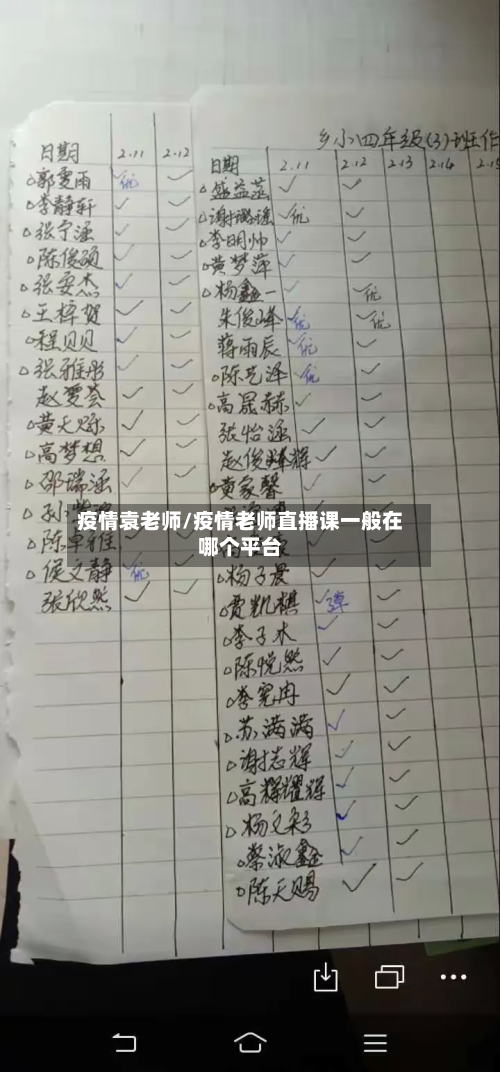 乡小四年级(3)班作
日期 2.11 2.12
郭雯雨 优
李静轩
张宁涵
陈俊硕
张奕杰
王梓贺
程贝贝
张雅彤
赵雯荟
黄天烁
高梦想
邵瑞涵
陈卓雅
侯文静 优
张欣然
日期 2.11 2.12 2.13 2.14
盛益菡
谢璐瑶 优
李明帅
黄梦萍
杨鑫一 优
朱俊峰 优 优
蒋雨辰 优
陈艺泽 优
高晟赫
张怡涵
赵俊辉
黄家馨
疫情袁老师/疫情老师直播课一般在
哪个平台
杨子晨
贾凯棋
李子木
陈悦然
李宪冉
苏满满
谢志辉
高辉耀辉
杨文彩
蔡淑鑫
陈天赐